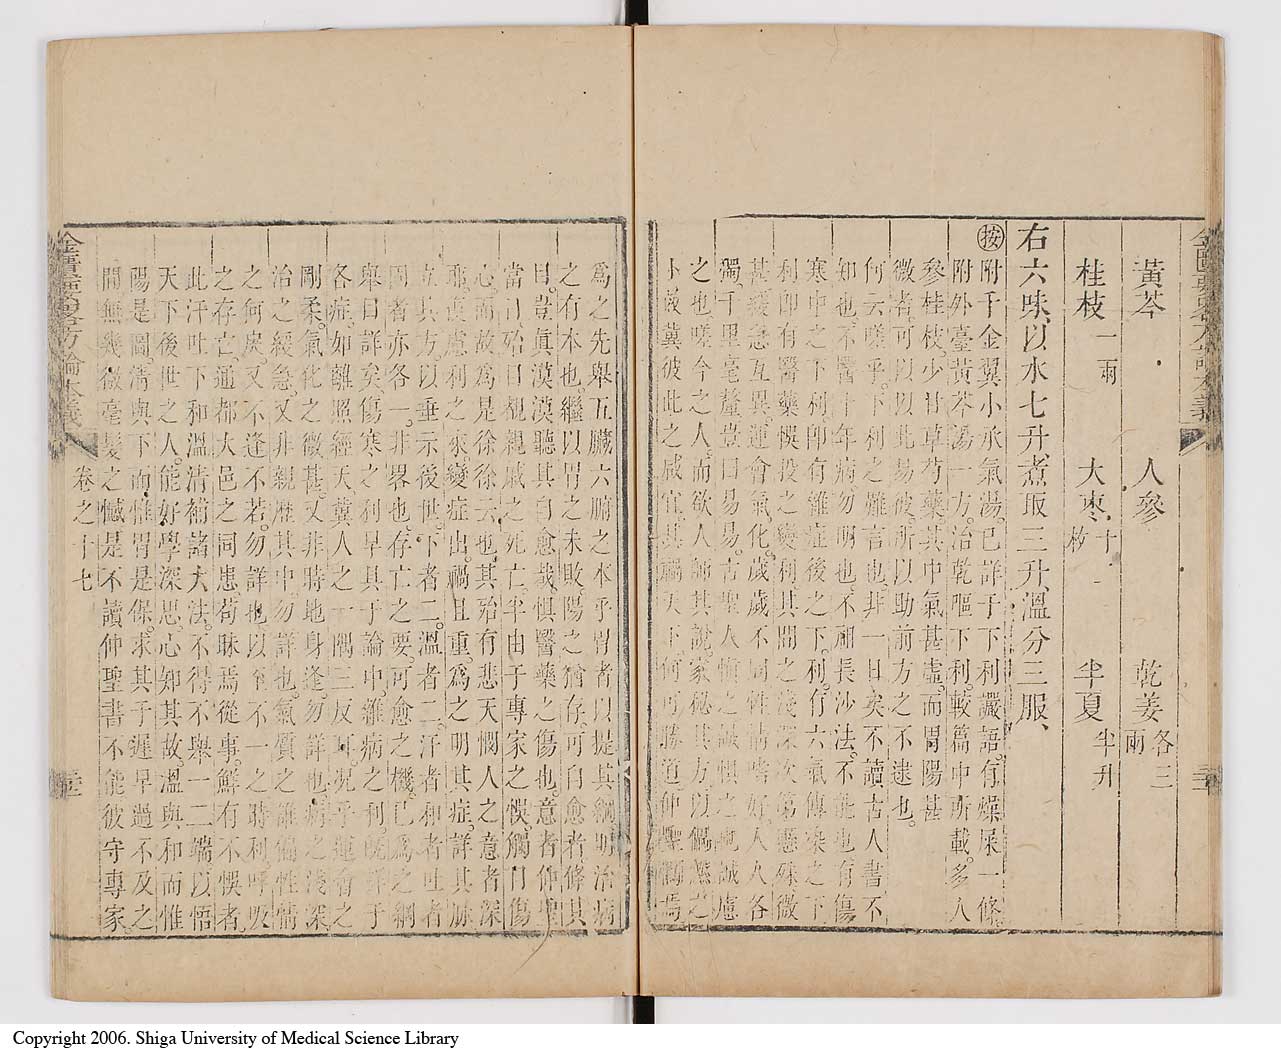 黃芩 人參 乾姜各三兩
桂枝一兩 大棗十枚 半夏半升
右六味以水七升煮取三升溫分三服
按附千金翼小承氣湯已詳于下利讝語有燥屎一條
附外臺黃芩湯一方治乾嘔下利較篇中所載多人
參桂枝少甘草芍藥其中氣甚虛而胃陽甚
微者可以以此易彼所以助前方之不逮也
何云嗟乎下利之難言也非一日矣不讀古人書不
知也不醫十年病勿明也不師長沙法不能也有傷
寒中之下利卽有雜症後之下利有六氣傳染之下
利卽有醫藥悞投之變利其間之淺深次第懸殊微
甚緩急互異運會氣化歲歲不同性情嗜好人人各
獨千里毫釐豈曰易易古聖人愼之誠懼之
之也嗟今之人而欲人師其說家秘其方以偶
此之咸宜其禍天下何可勝道仲聖
爲之先舉五臟六腑之本乎胃者以提其綱明治病
之有本也繼以胃之未敗陽之猶存可自愈者條其
曰豈眞漠漠聽其自愈哉懼醫藥之傷也意者仲聖
當日殆目覩親戚之死亡半由于專家之悞觸目傷
心而故爲是徐徐云也其殆有悲天憫人之意者深
慮利之來變症出禍且重爲之明其症詳其脉
立其方以垂示後世下者二溫者二汗者和者吐者
者亦各一非畧也存亡之要可愈之機已爲之綱
舉曰詳矣傷寒之利早具于論中雜病之利旣詳于
各症如離照經天冀人之一隅三反耳况乎運會之
剛柔氣化之微甚又非時地身逢勿詳也病之淺深
治之緩急又非親歷其中勿詳也氣質之雜偶性情
之何戾又不逢不若勿詳也以至不一之時利呼吸
之存亡通都大邑之同患苟昧焉從事鮮有不悞者
此汗吐下和溫清補諸大法不得不舉一二端以悟
天下後世之人能好學深思心知其故溫與和而惟
陽是圖清與下而惟胃是保求其于遲早過不及之
間無幾微毫髮之憾是不讀仲聖書不能彼守專家
金匱要畧方論本義 卷之十七